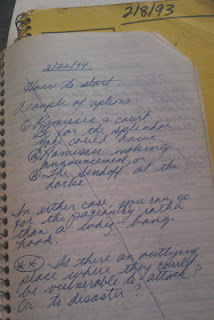 2/8/93
2/22/94
How to start
A couple of options
① Ramses's court
for the splendor
you could have
② Ramses making
announcement or
③ The sendoff at the
docks
In either case, you can go
for the pageantry rather
than a whiz-bang
hook.
(**) Is there an outlying
place where they could
be vulnerable to attack?
Or to disaster?